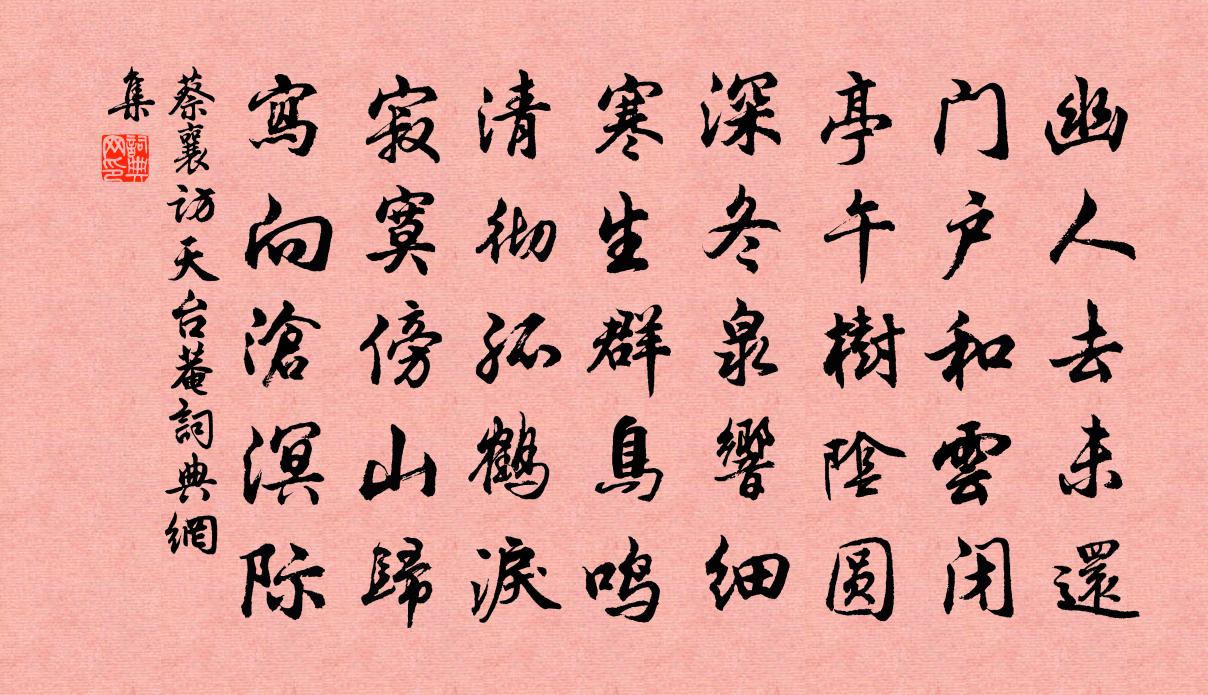 幽人去未還
门户和雲闭
亭午樹陰圆
深冬泉響细
寒生群鳥鸣
清彻孤鹤淚
寂寞傍山歸
寫向滄溟际
蔡襄访天台菴詞典網
集
詞典
网印